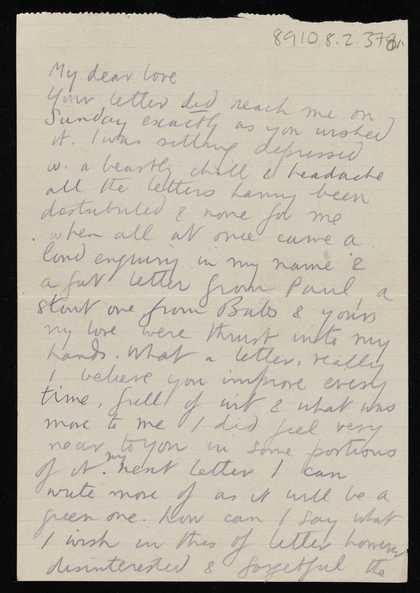 8910 8.2.378r
My dear love
Your letter did reach me on
Sunday exactly as you wished
it. I was sitting depressed
w. a beastly chill & headache
all the letters having been
distributed & none for me
when all at once came a
loud enquiry in my name &
a fat letter from Paul, a
stout one from Babs & yours
my love were thrust into my
hands. What a letter, really
I believe you improve every
time, full of wit & what was
more to me I did feel very
near to you in some portions
of it. my next letter I can
write more of as it will be a
green one. How can I say what
I wish in this of letter however
disinterested & forgetful the